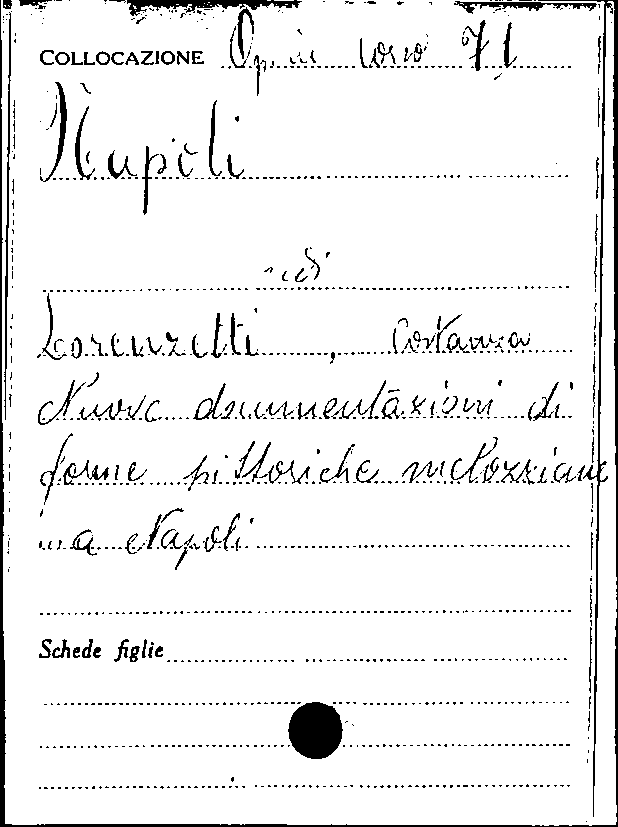 COLLOCAZIONE Op. in corso 71
Napoli
vedi
Lorenzetti, Costanza
Nuove documentazioni di
forme pittoriche melozziane
a Napoli
Schede figlie